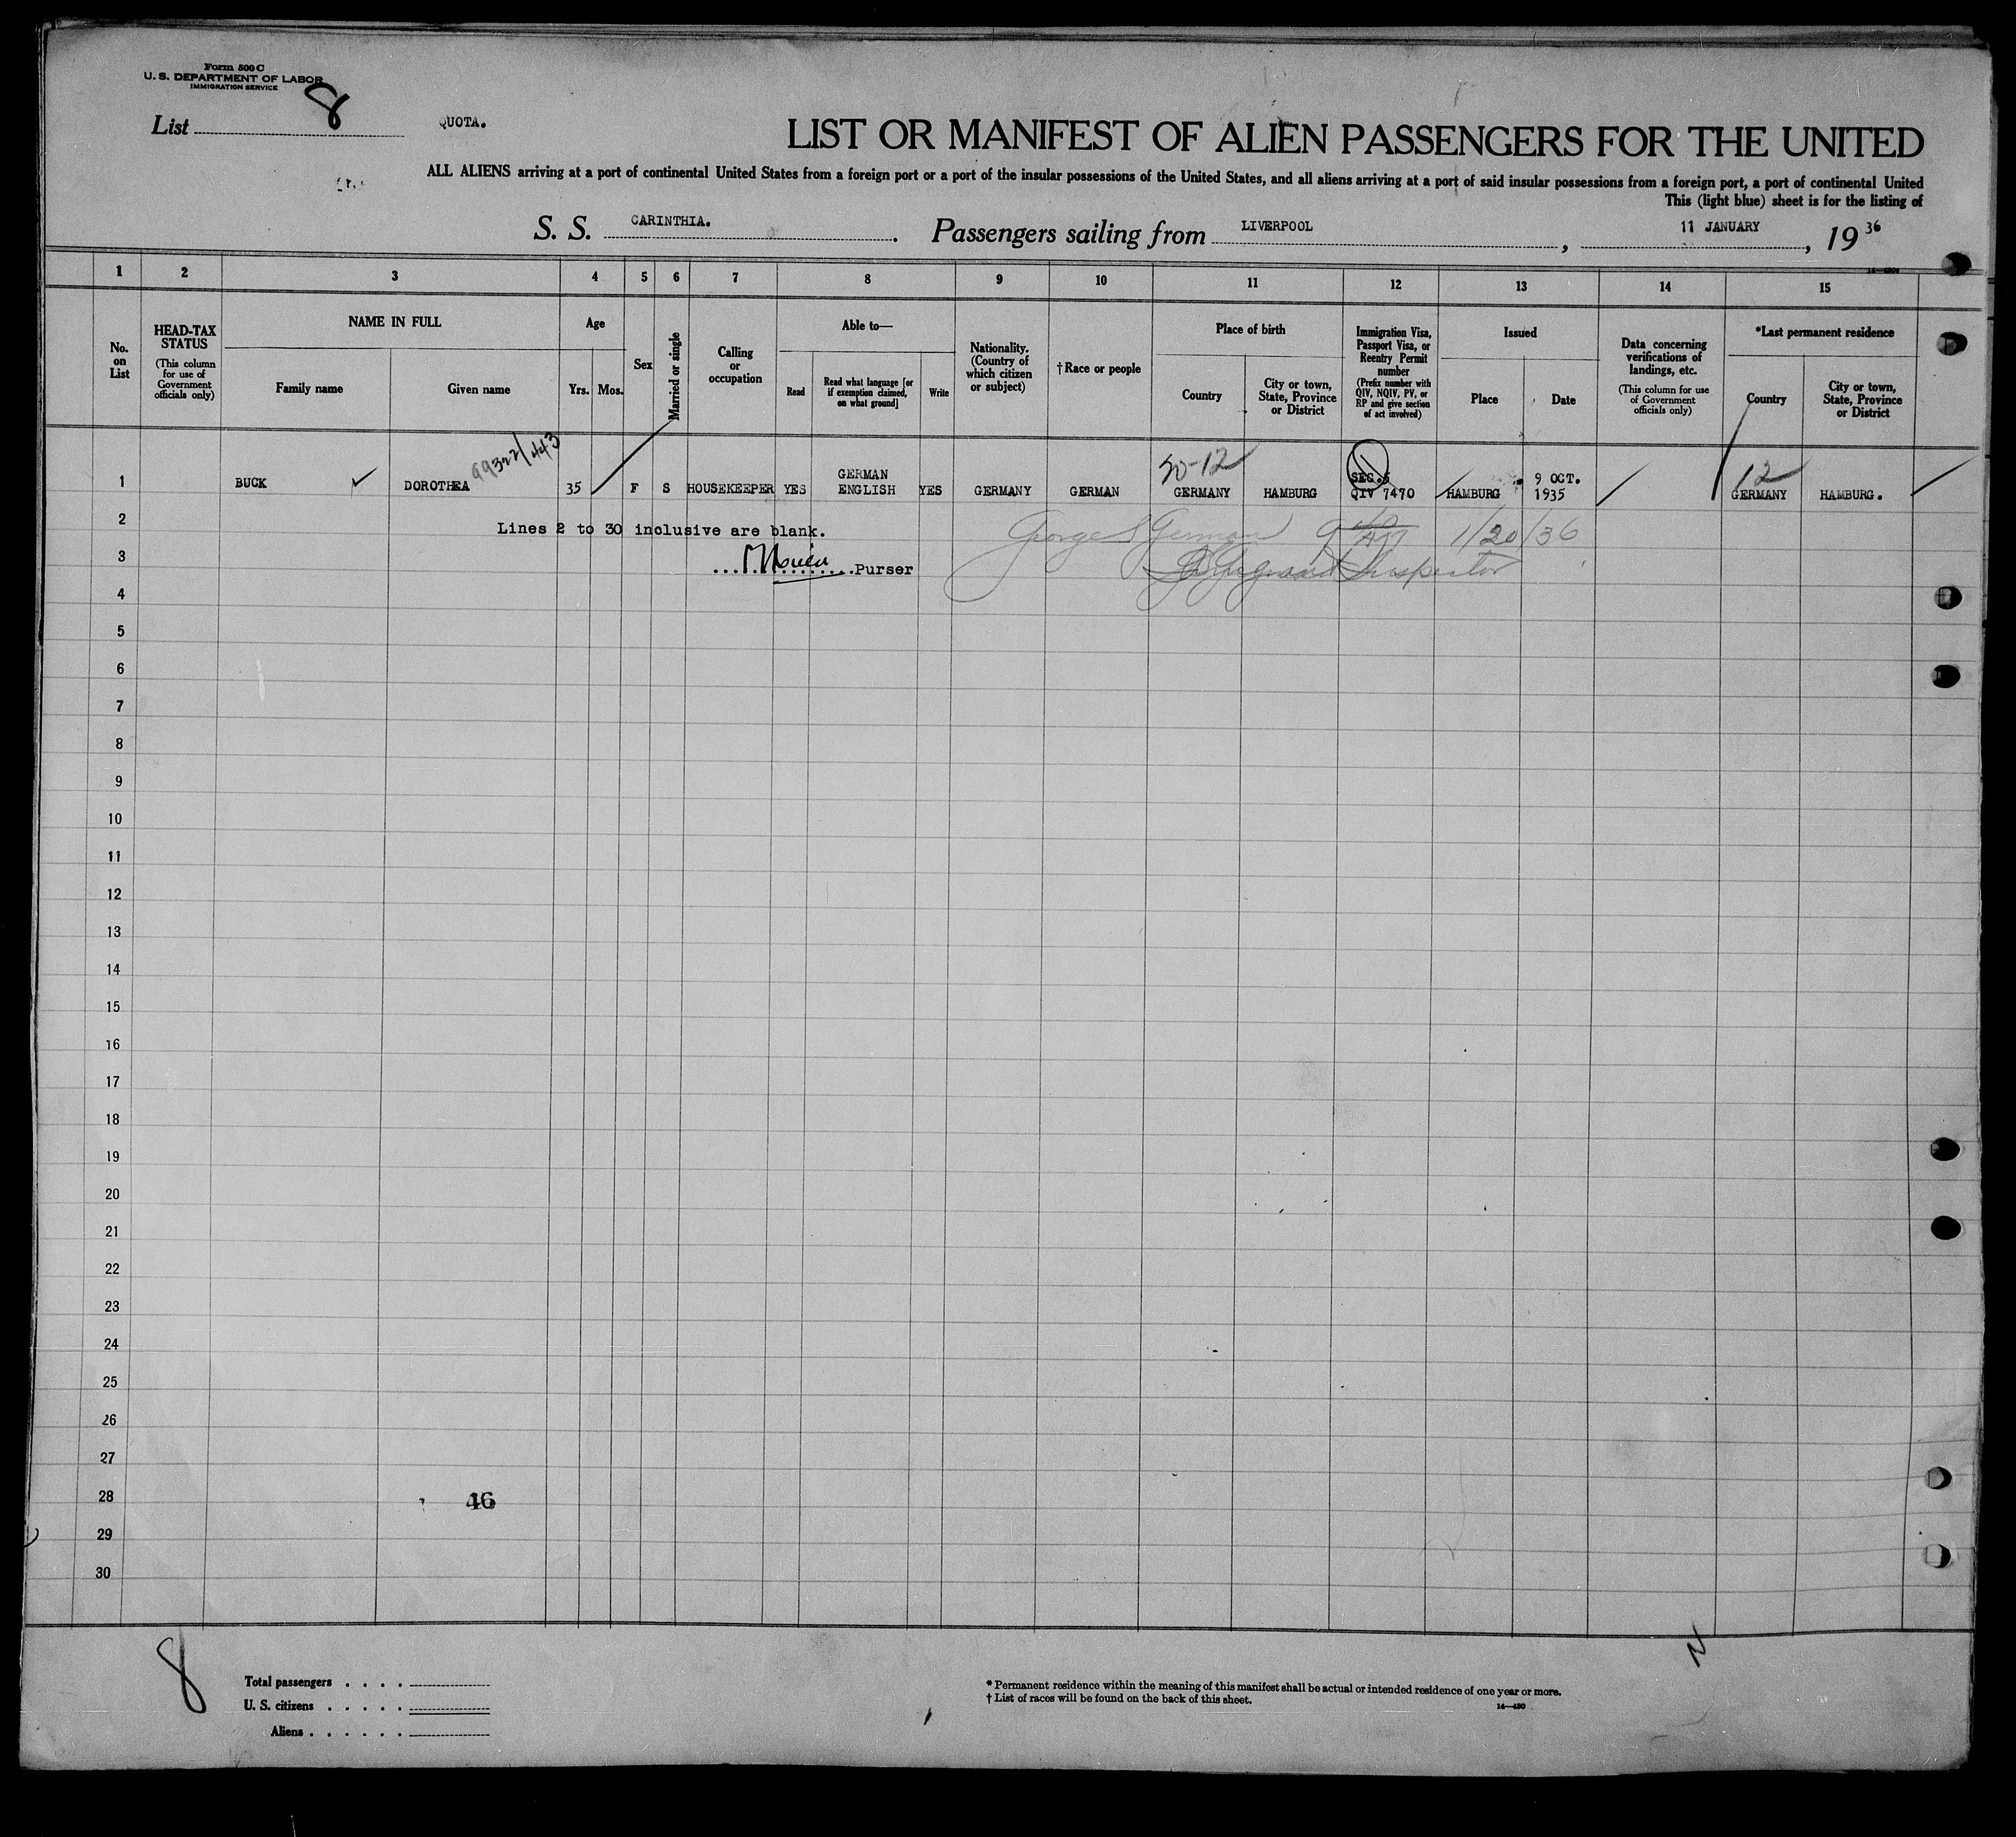 Form 500 C
U. S. DEPARTMENT OF LABOR
IMMIGRATION SERVICE
List 8
QUOTA.
LIST OR MANIFEST OF ALIEN PASSENGERS FOR THE UNITED
ALL ALIENS arriving at a port of continental United States from a foreign port or a port of the insular possessions of the United States, and all aliens arriving at a port of said insular possessions from a foreign port, a port of continental United
This (light blue) sheet is for the listing of
S. S. CARINTHIA. Passengers sailing from LIVERPOOL, 11 JANUARY, 19 36
1 2 3 4 5 6 7 8 9 10 11 12 13 14 15
No. on List
HEAD-TAX STATUS
(This column for use of Government officials only)
NAME IN FULL
Family name
Given name
Age
Yrs. Mos.
Sex
Married or single
Calling or occupation
Able to—
Read
Read what language [or if exemption claimed, on what ground]
Write
Nationality. (Country of which citizen or subject)
†Race or people
Place of birth
Country
City or town, State, Province or District
Immigration Visa, Passport Visa, or Reentry Permit number
(Prefix number with QIV, NQIV, PV, or RP and give section of act involved)
Issued
Place
Date
Data concerning verifications of landings, etc.
(This column for use of Government officials only)
*Last permanent residence
Country
City or town, State, Province or District
99322/443
30-12
12
1 BUCK DOROTHEA 35 F S HOUSEKEEPER YES GERMAN ENGLISH YES GERMANY GERMAN GERMANY HAMBURG SEC.5 QIV 7470 HAMBURG 9 OCT. 1935 GERMANY HAMBURG.
2
Lines 2 to 30 inclusive are blank.
George S German 1/20/36
3
Purser
Inspector
4
5
6
7
8
9
10
11
12
13
14
15
16
17
18
19
20
21
22
23
24
25
26
27
28
46
29
30
8
N
Total passengers . . . .
U. S. citizens . . . . .
Aliens . . . . . .
* Permanent residence within the meaning of this manifest shall be actual or intended residence of one year or more.
† List of races will be found on the back of this sheet.
14—430